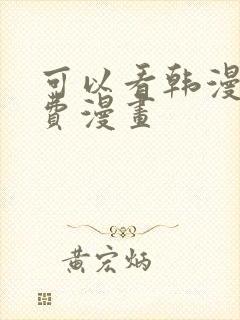 可以看韩漫
費漫畫
黄宏炳